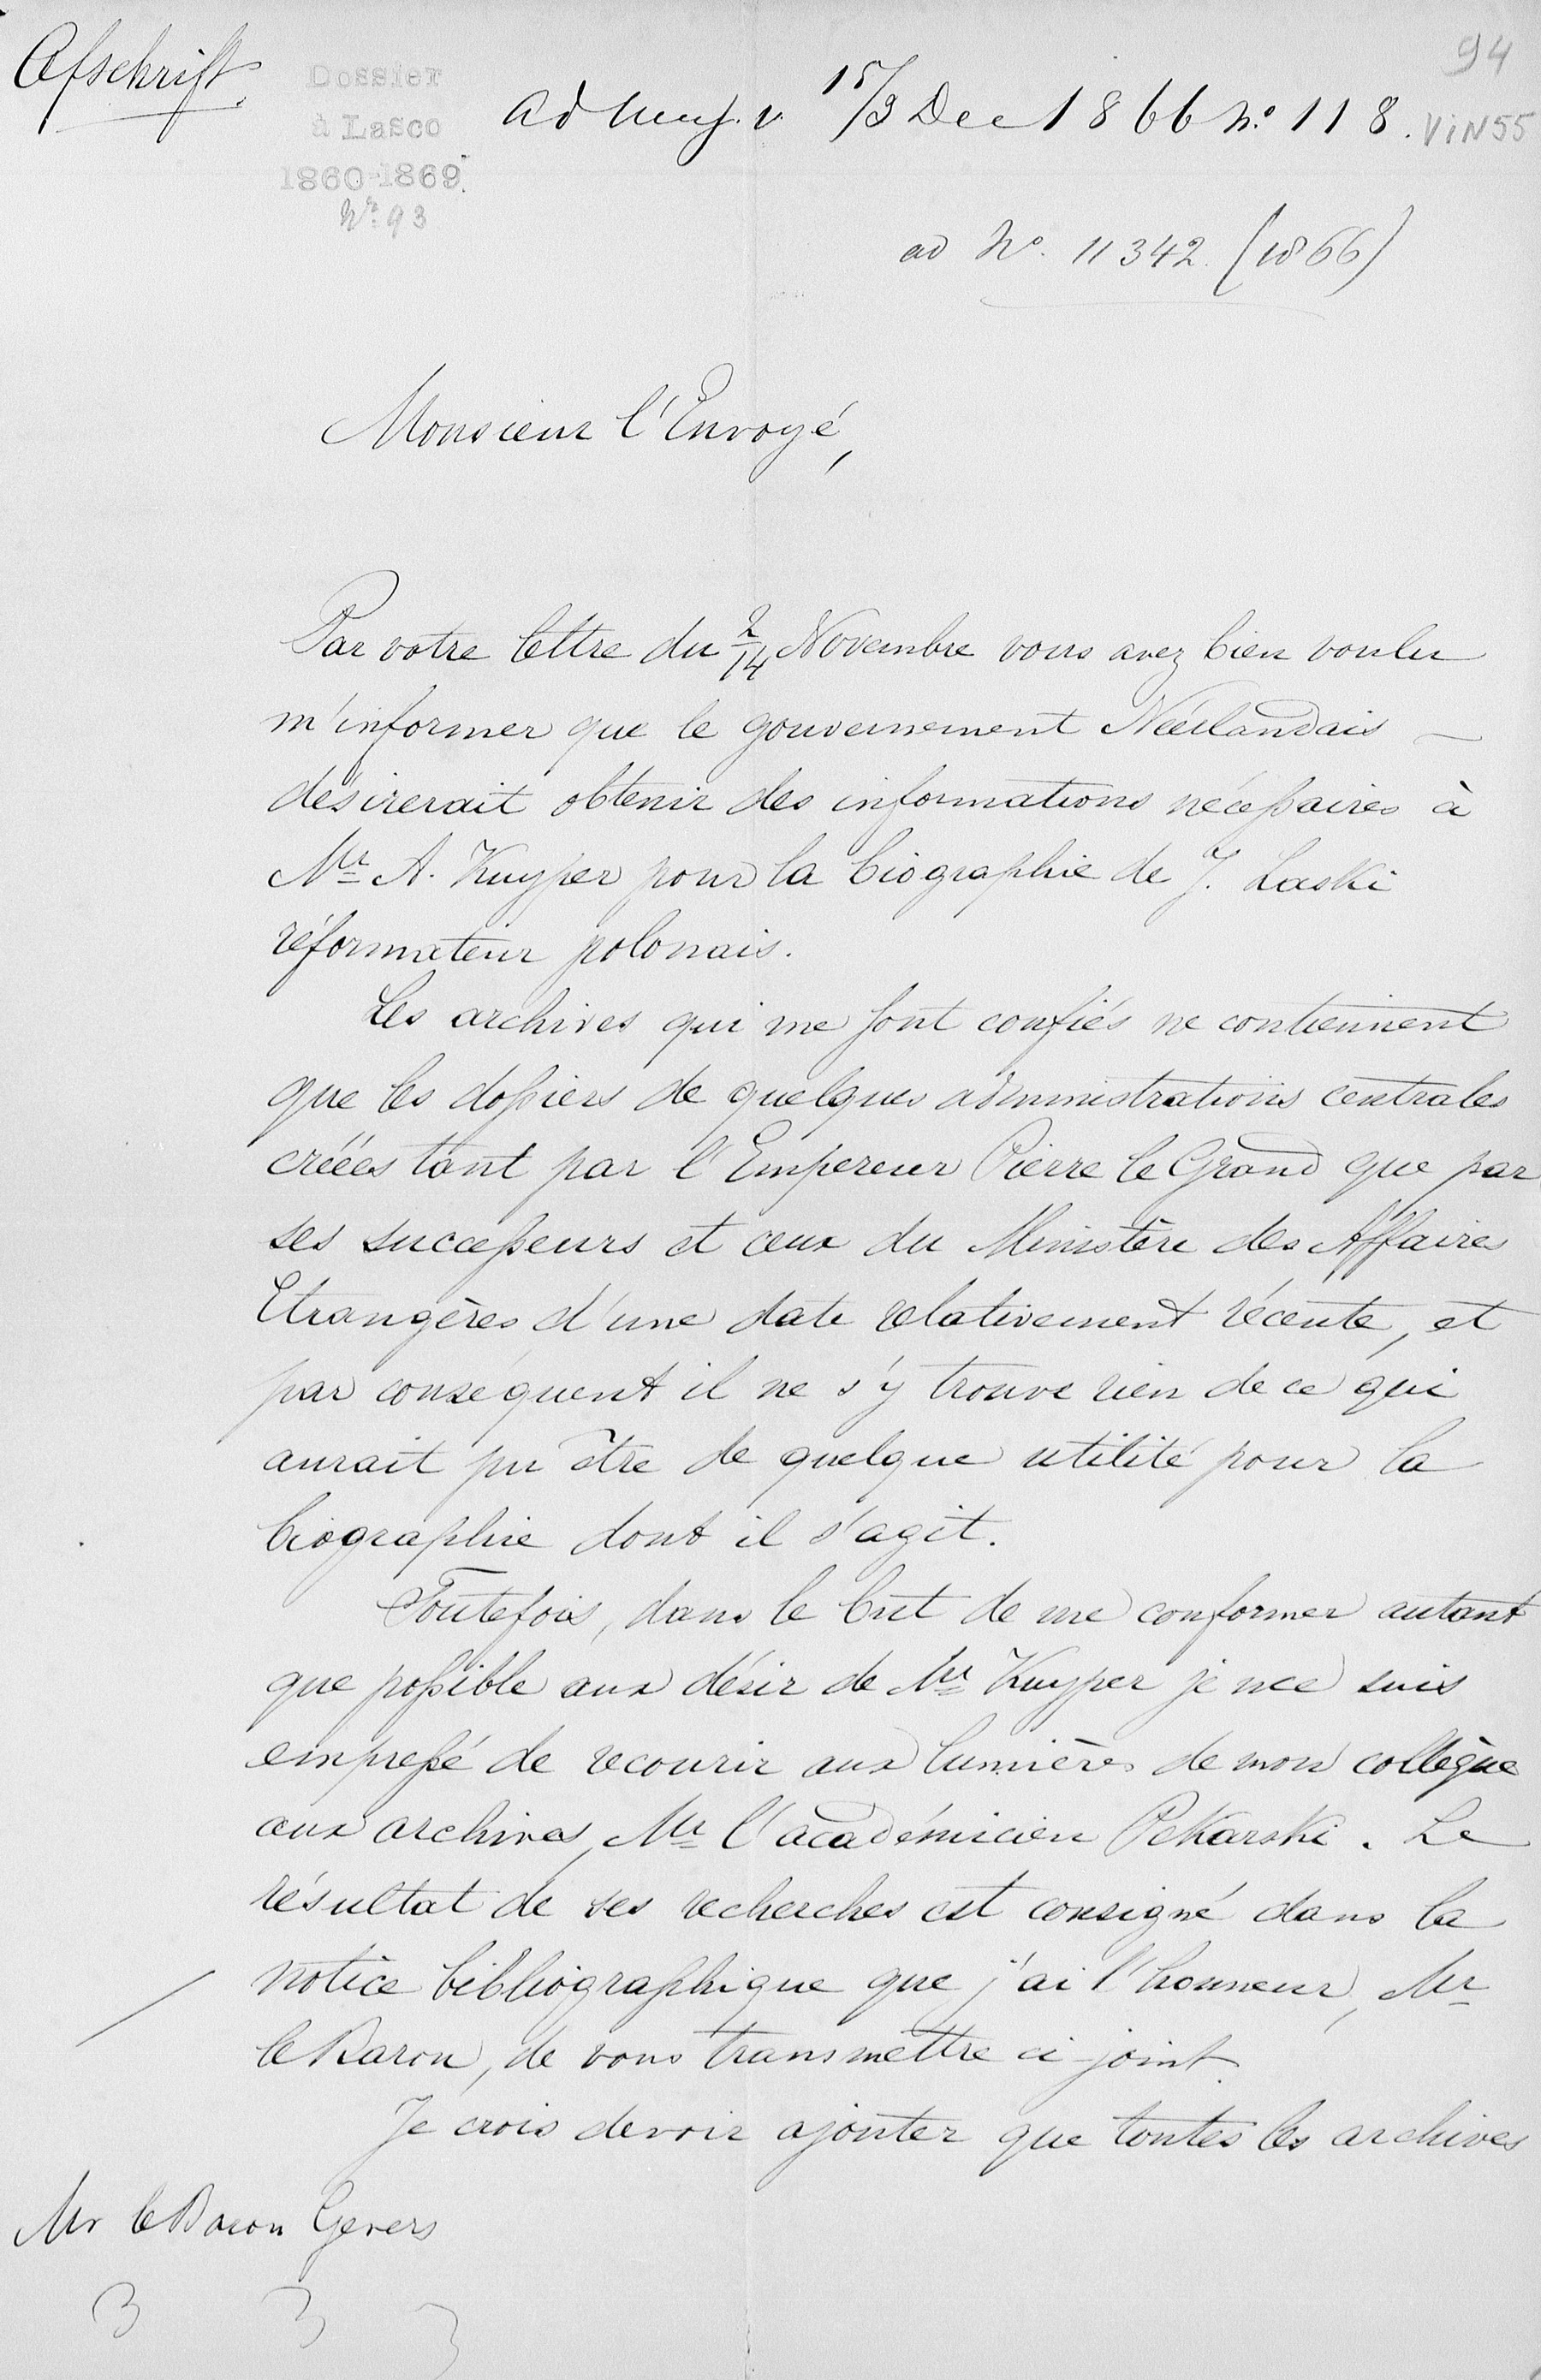 Afschrift.
94
Dossier
à Lasco
1860-1869.
No. 93
15/3 Dec 1866 No. 118.
VIN55
ad No. 11342. (1866)
Monsieur l'Envoyé,
Par votre lettre du 2/14 Novembre vous avez bien voulu
m'informer que le gouvernement Néerlandais
désirerait obtenir des informations nécessaires à
Mr A. Kuyper pour la biographie de J. Laski
réformateur polonais.
Les archives qui me sont confiés ne contiennent
que les dossiers de quelques administrations centrales
créées tant par l'Empereur Pierre le Grand que par
ses successeurs et ceux du Ministère des Affaires
Etrangères d'une date relativement récente, et
par conséquent il ne s'y trouve rien de ce qui
aurait pu être de quelque utilité pour la
biographie dont il s'agit.
Toutefois, dans le but de me conformer autant
que possible aux désir de Mr Kuyper je me suis
empressé de recourir aux lumières de mon collègue
aux archives, Mr l'académicien Pekarski. Le
résultat de ses recherches est consigné dans la
notice bibliographique que j'ai l'honneur, Mr
le Baron, de vous transmettre ci-joint.
Je crois devoir ajouter que toutes les archives
Mr le Baron Gevers